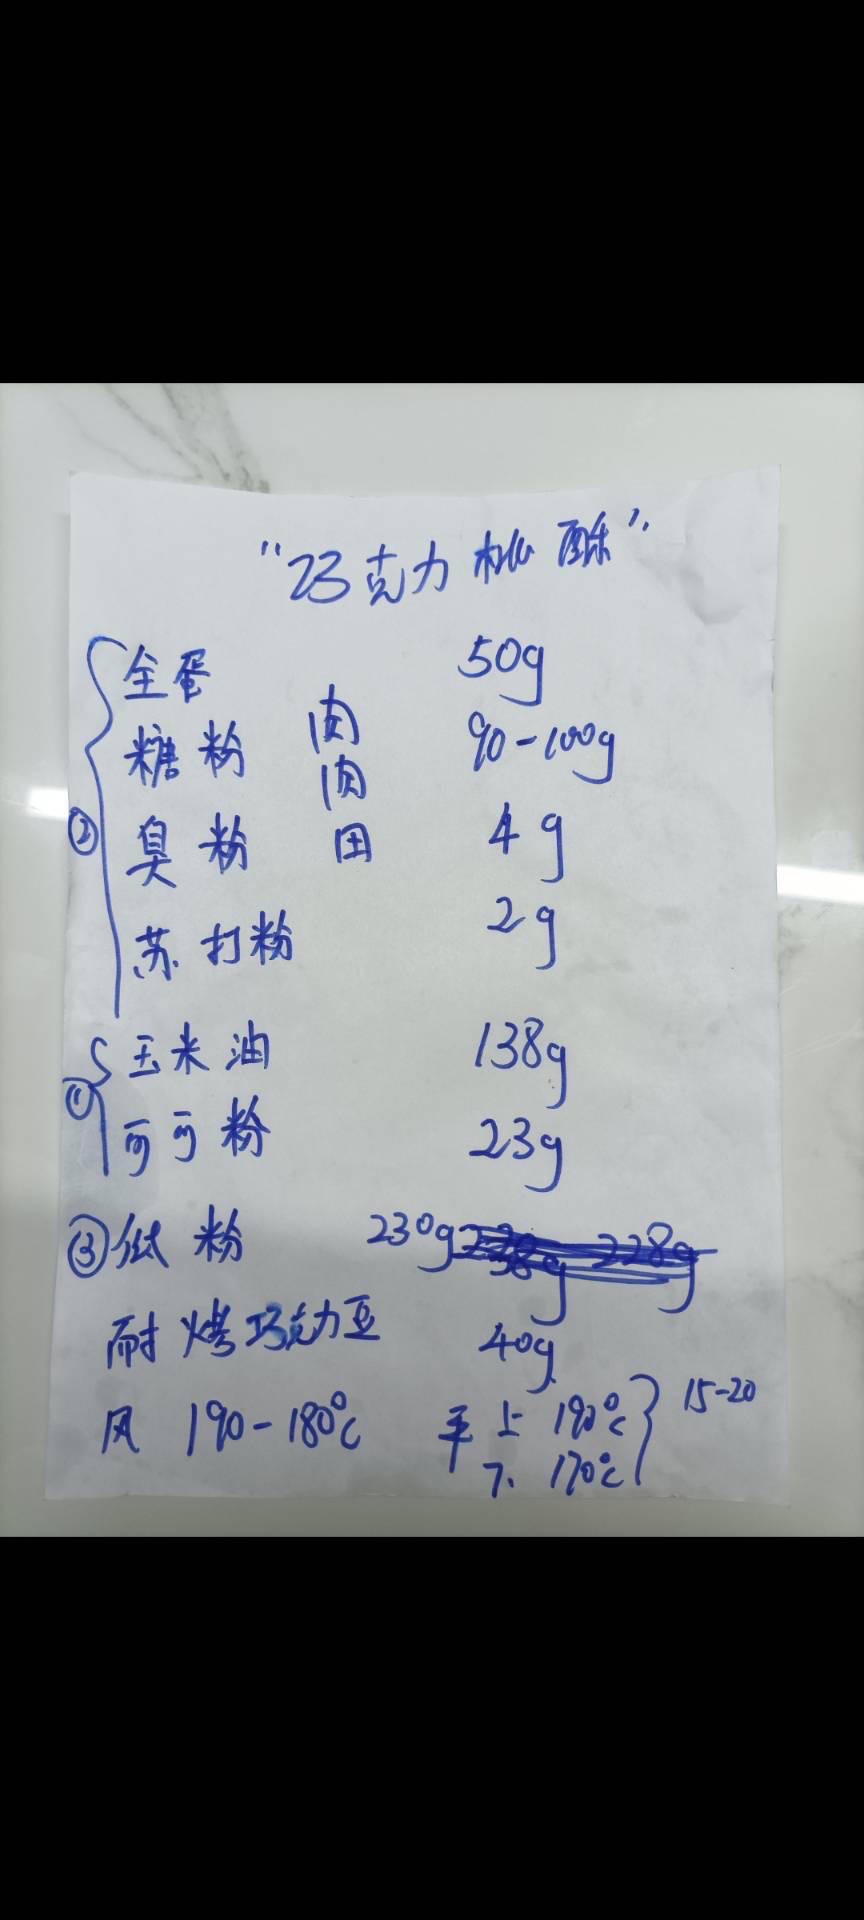 "巧克力桃酥"
② 全蛋 50g
糖粉 90-100g
臭粉 4g
苏打粉 2g
肉
肉
田
① 玉米油 138g
可可粉 23g
③ 低粉 230g 228g
耐烤巧克力豆 40g
风 190-180℃ 平 上 190℃ 15-20
下 170℃